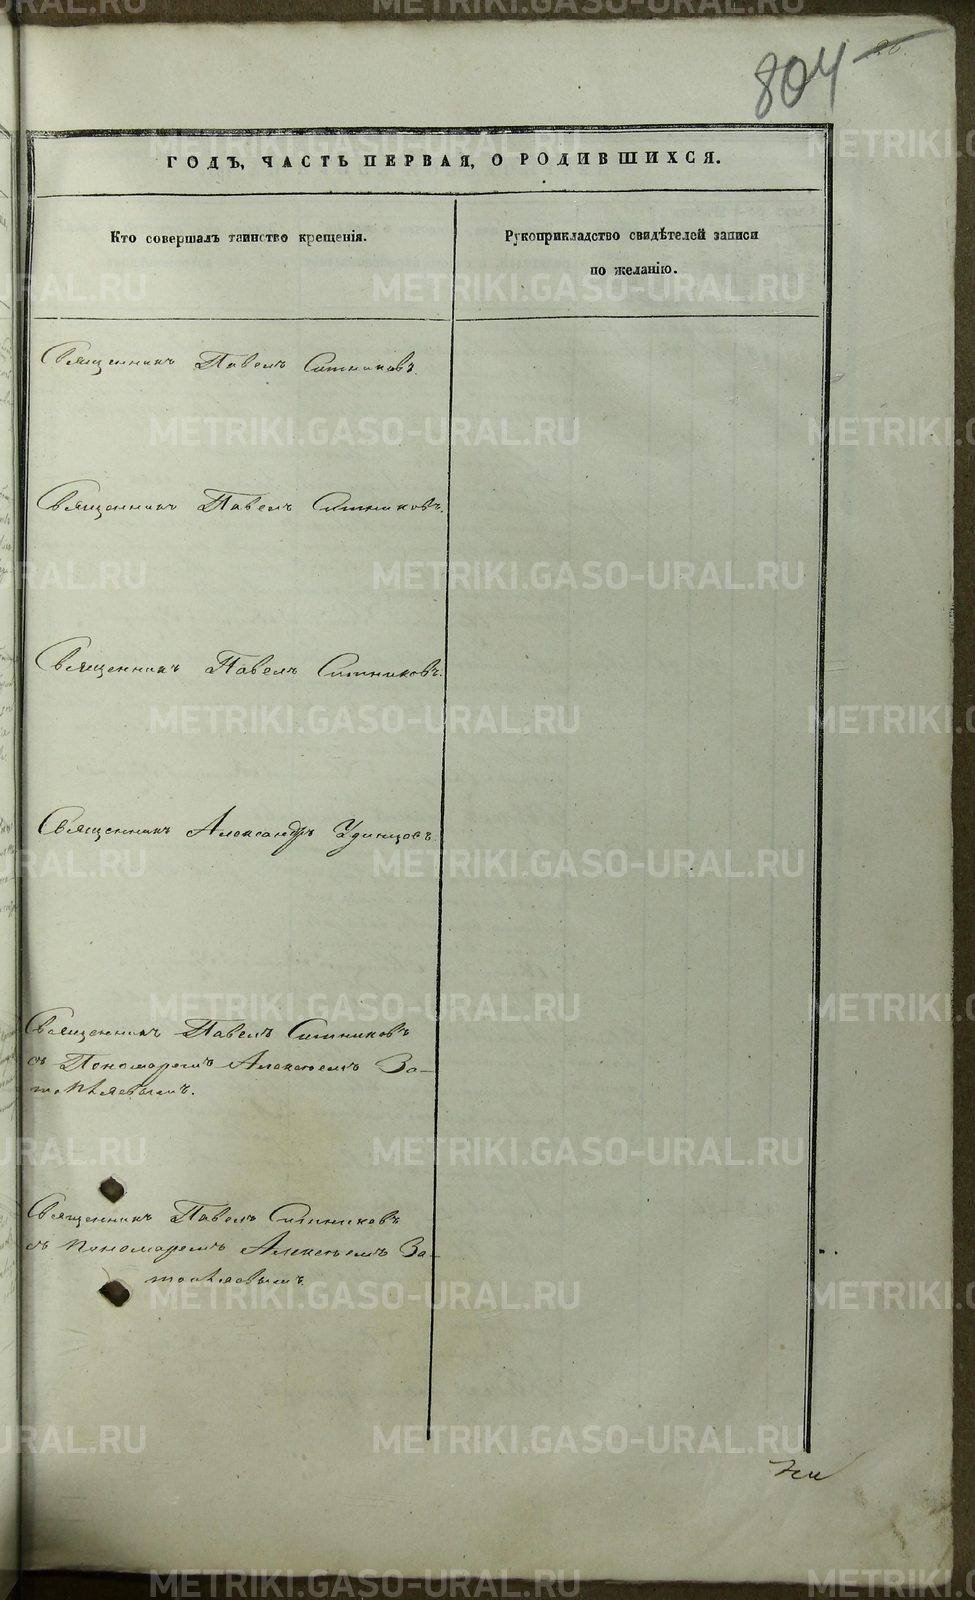 804
26.
ГОДЪ, ЧАСТЬ ПЕРВАЯ, О РОДИВШИХСЯ.
Кто совершалъ таинство крещенія.
Рукоприкладство свидѣтелей записи
по желанію.
Священникъ Павелъ Ситниковъ.
Священникъ Павелъ Ситниковъ.
Священникъ Павелъ Ситниковъ.
Священникъ Александръ Удинцовъ
Священникъ Павелъ Ситниковъ
съ Пономаремъ Алексѣемъ За-
топляевымъ.
Священникъ Павелъ Ситниковъ
съ пономаремъ Алексѣемъ За-
топляевымъ
METRIKI.GASO-URAL.RU